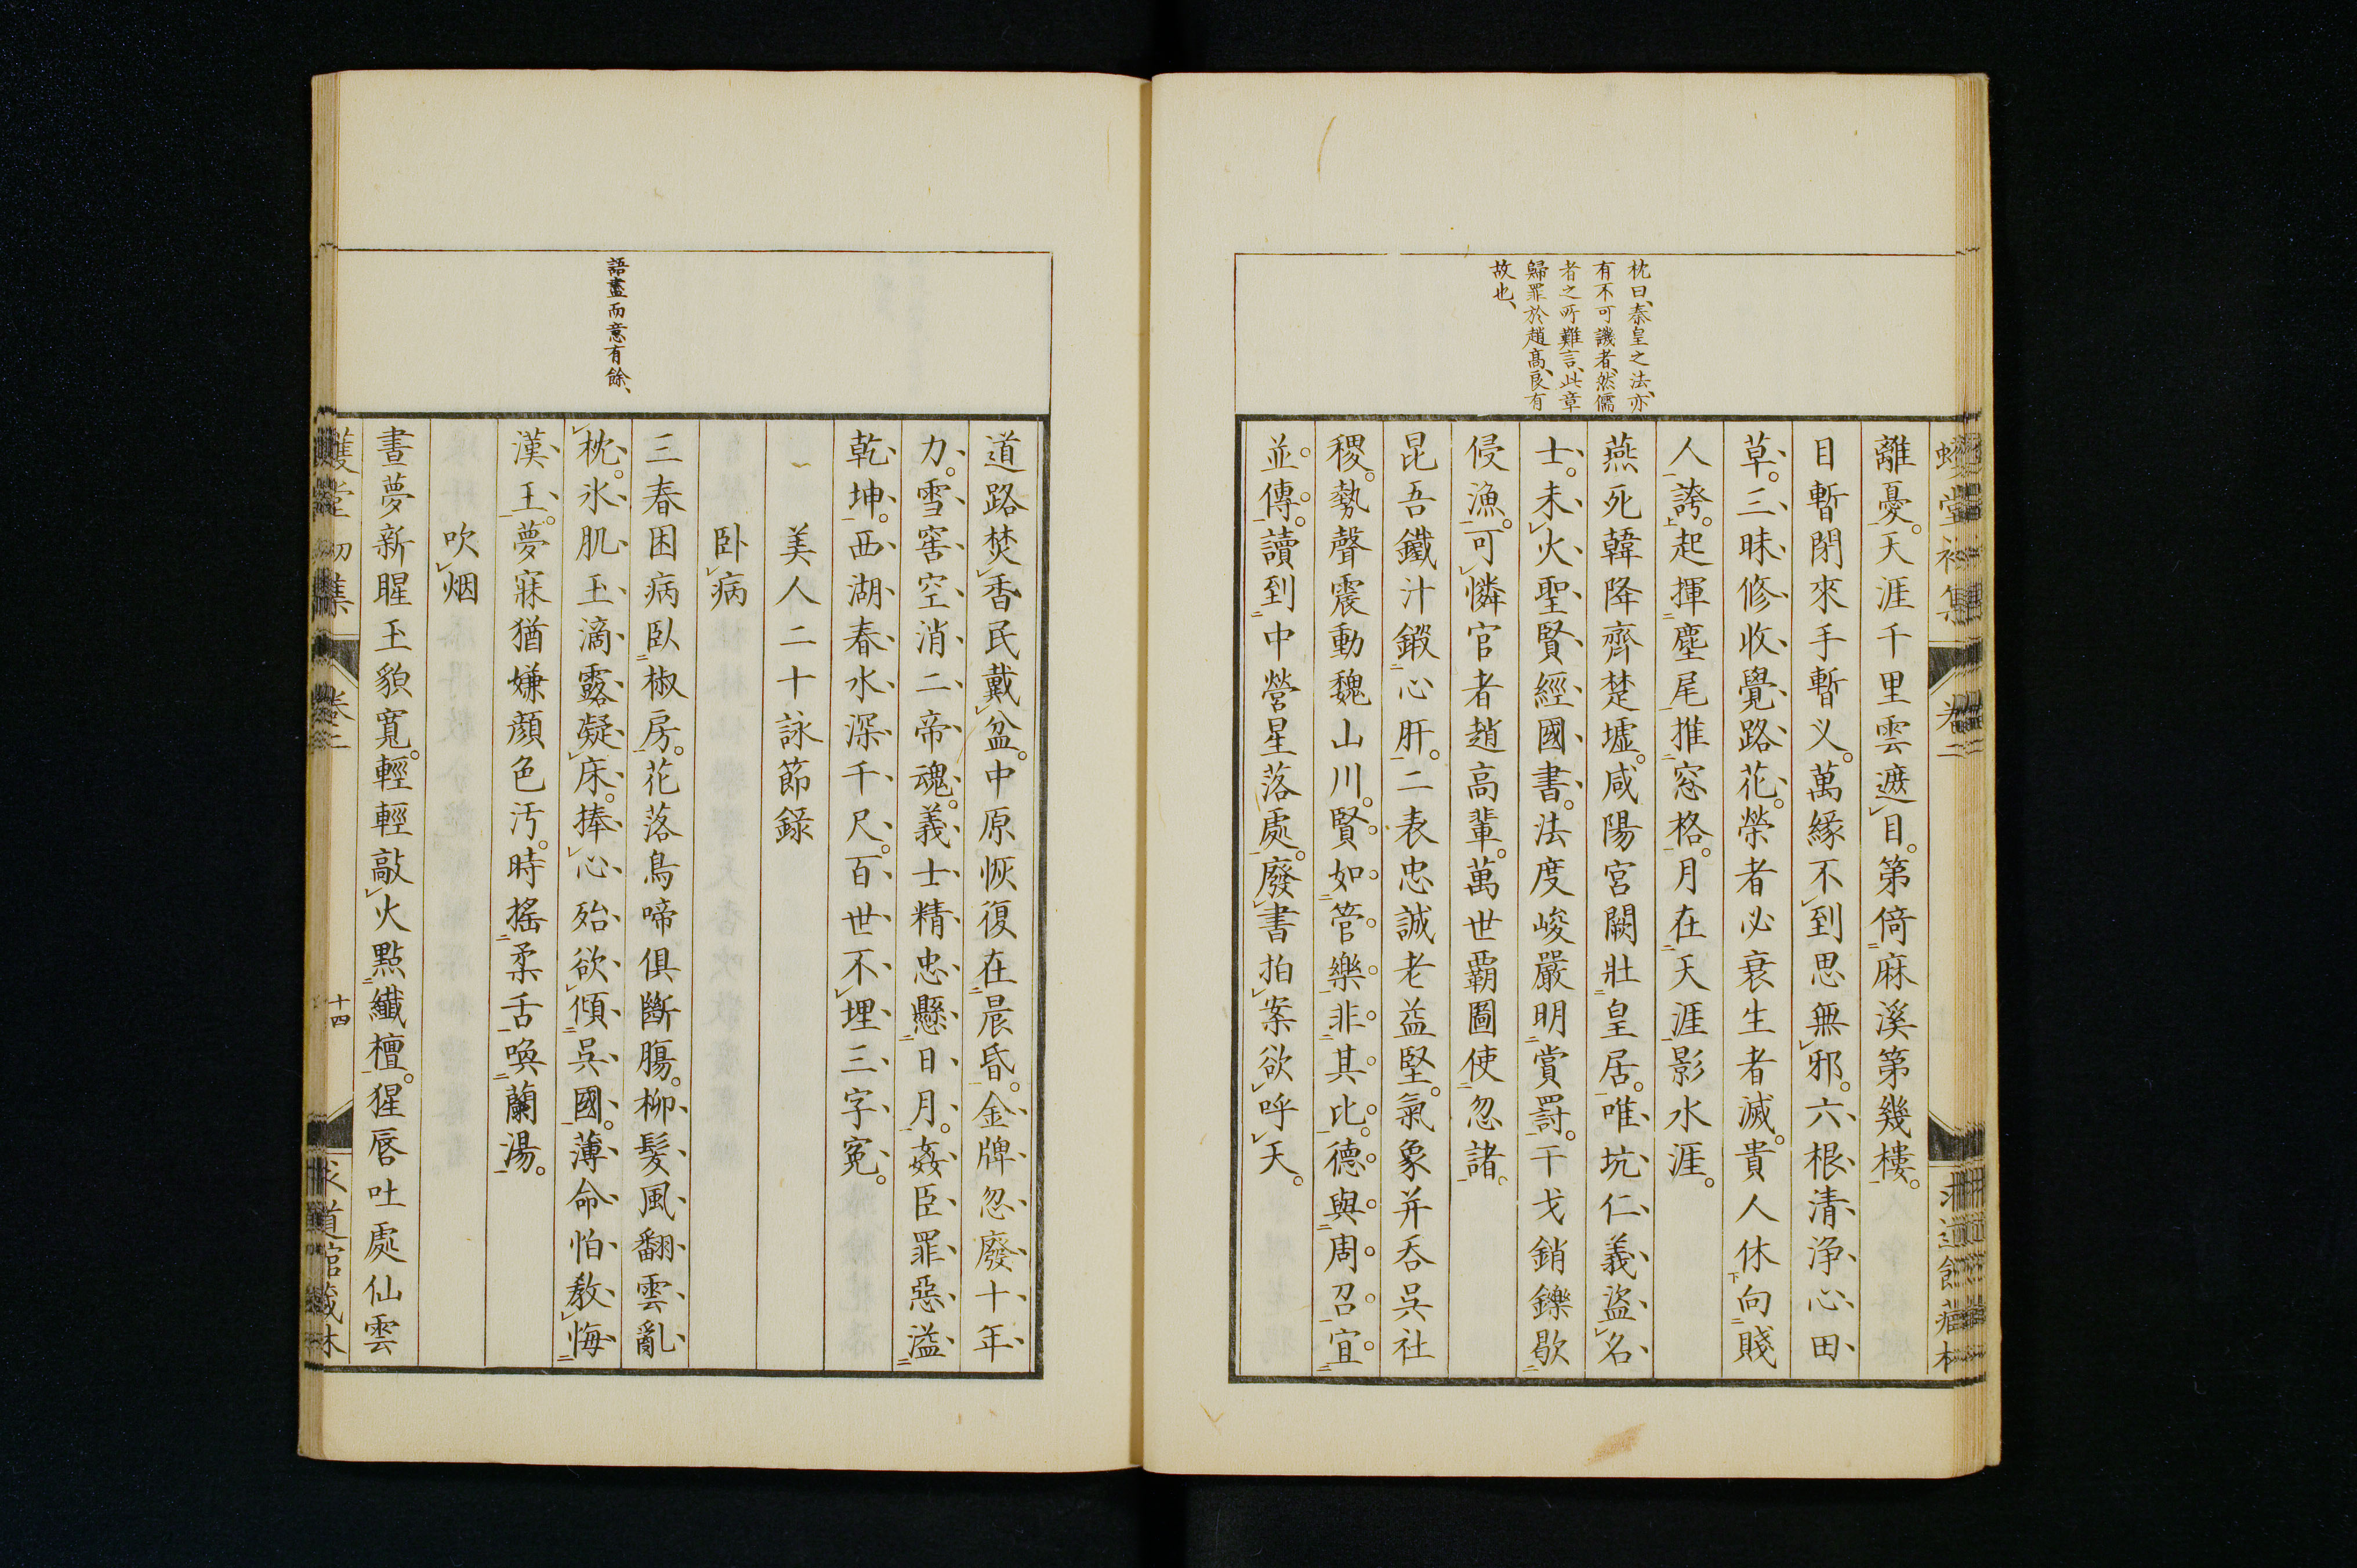 枕曰、秦皇之法、亦
有不可譏者、然儒
者之所難言、此章
歸罪於趙高、良有
故也、
離憂。天涯千里雲遮目。第倚麻溪第幾樓。
目暫閉來手暫叉。萬緣不到思無邪。六根清浄心田
草。三昧修收覺路花。榮者必衰生者滅。貴人休向賤
人誇。起揮麈尾推窓格。月在天涯影水涯。
燕死韓降齊楚墟。咸陽宮闕壯皇居。唯坑仁義盜名
士。未火聖賢經國書。法度峻嚴明賞罰。干戈銷鑠歇
侵漁。可憐官者趙高輩。萬世覇圖使忽諸。
昆吾鐵汁鍛心肝。二表忠誠老益堅。氣象并吞吳社
稷。勢聲震動魏山川。賢如管樂非其比。德與周召宜
並傳。讀到中營星落處。廢書拍案欲呼天。
語盡而意有餘、
道路焚香民戴盆。中原恢復在晨昏。金牌忽廢十年
力。雪窖空消二帝魂。義士精忠懸日月。姦臣罪惡溢
乾坤。西湖春水深千尺。百世不埋三字冤。
美人二十詠節錄
卧病
三春困病臥椒房。花落鳥啼俱斷膓。柳髮風翻雲亂
枕。氷肌玉滴露凝床。捧心殆欲傾吳國。薄命怕敎悔
漢王。夢寐猶嫌顏色汚。時搖柔舌喚蘭湯。
吹烟
晝夢新腥玉貌寬。輕輕敲火點纖檀。猩唇吐處仙雲
卷二
十四